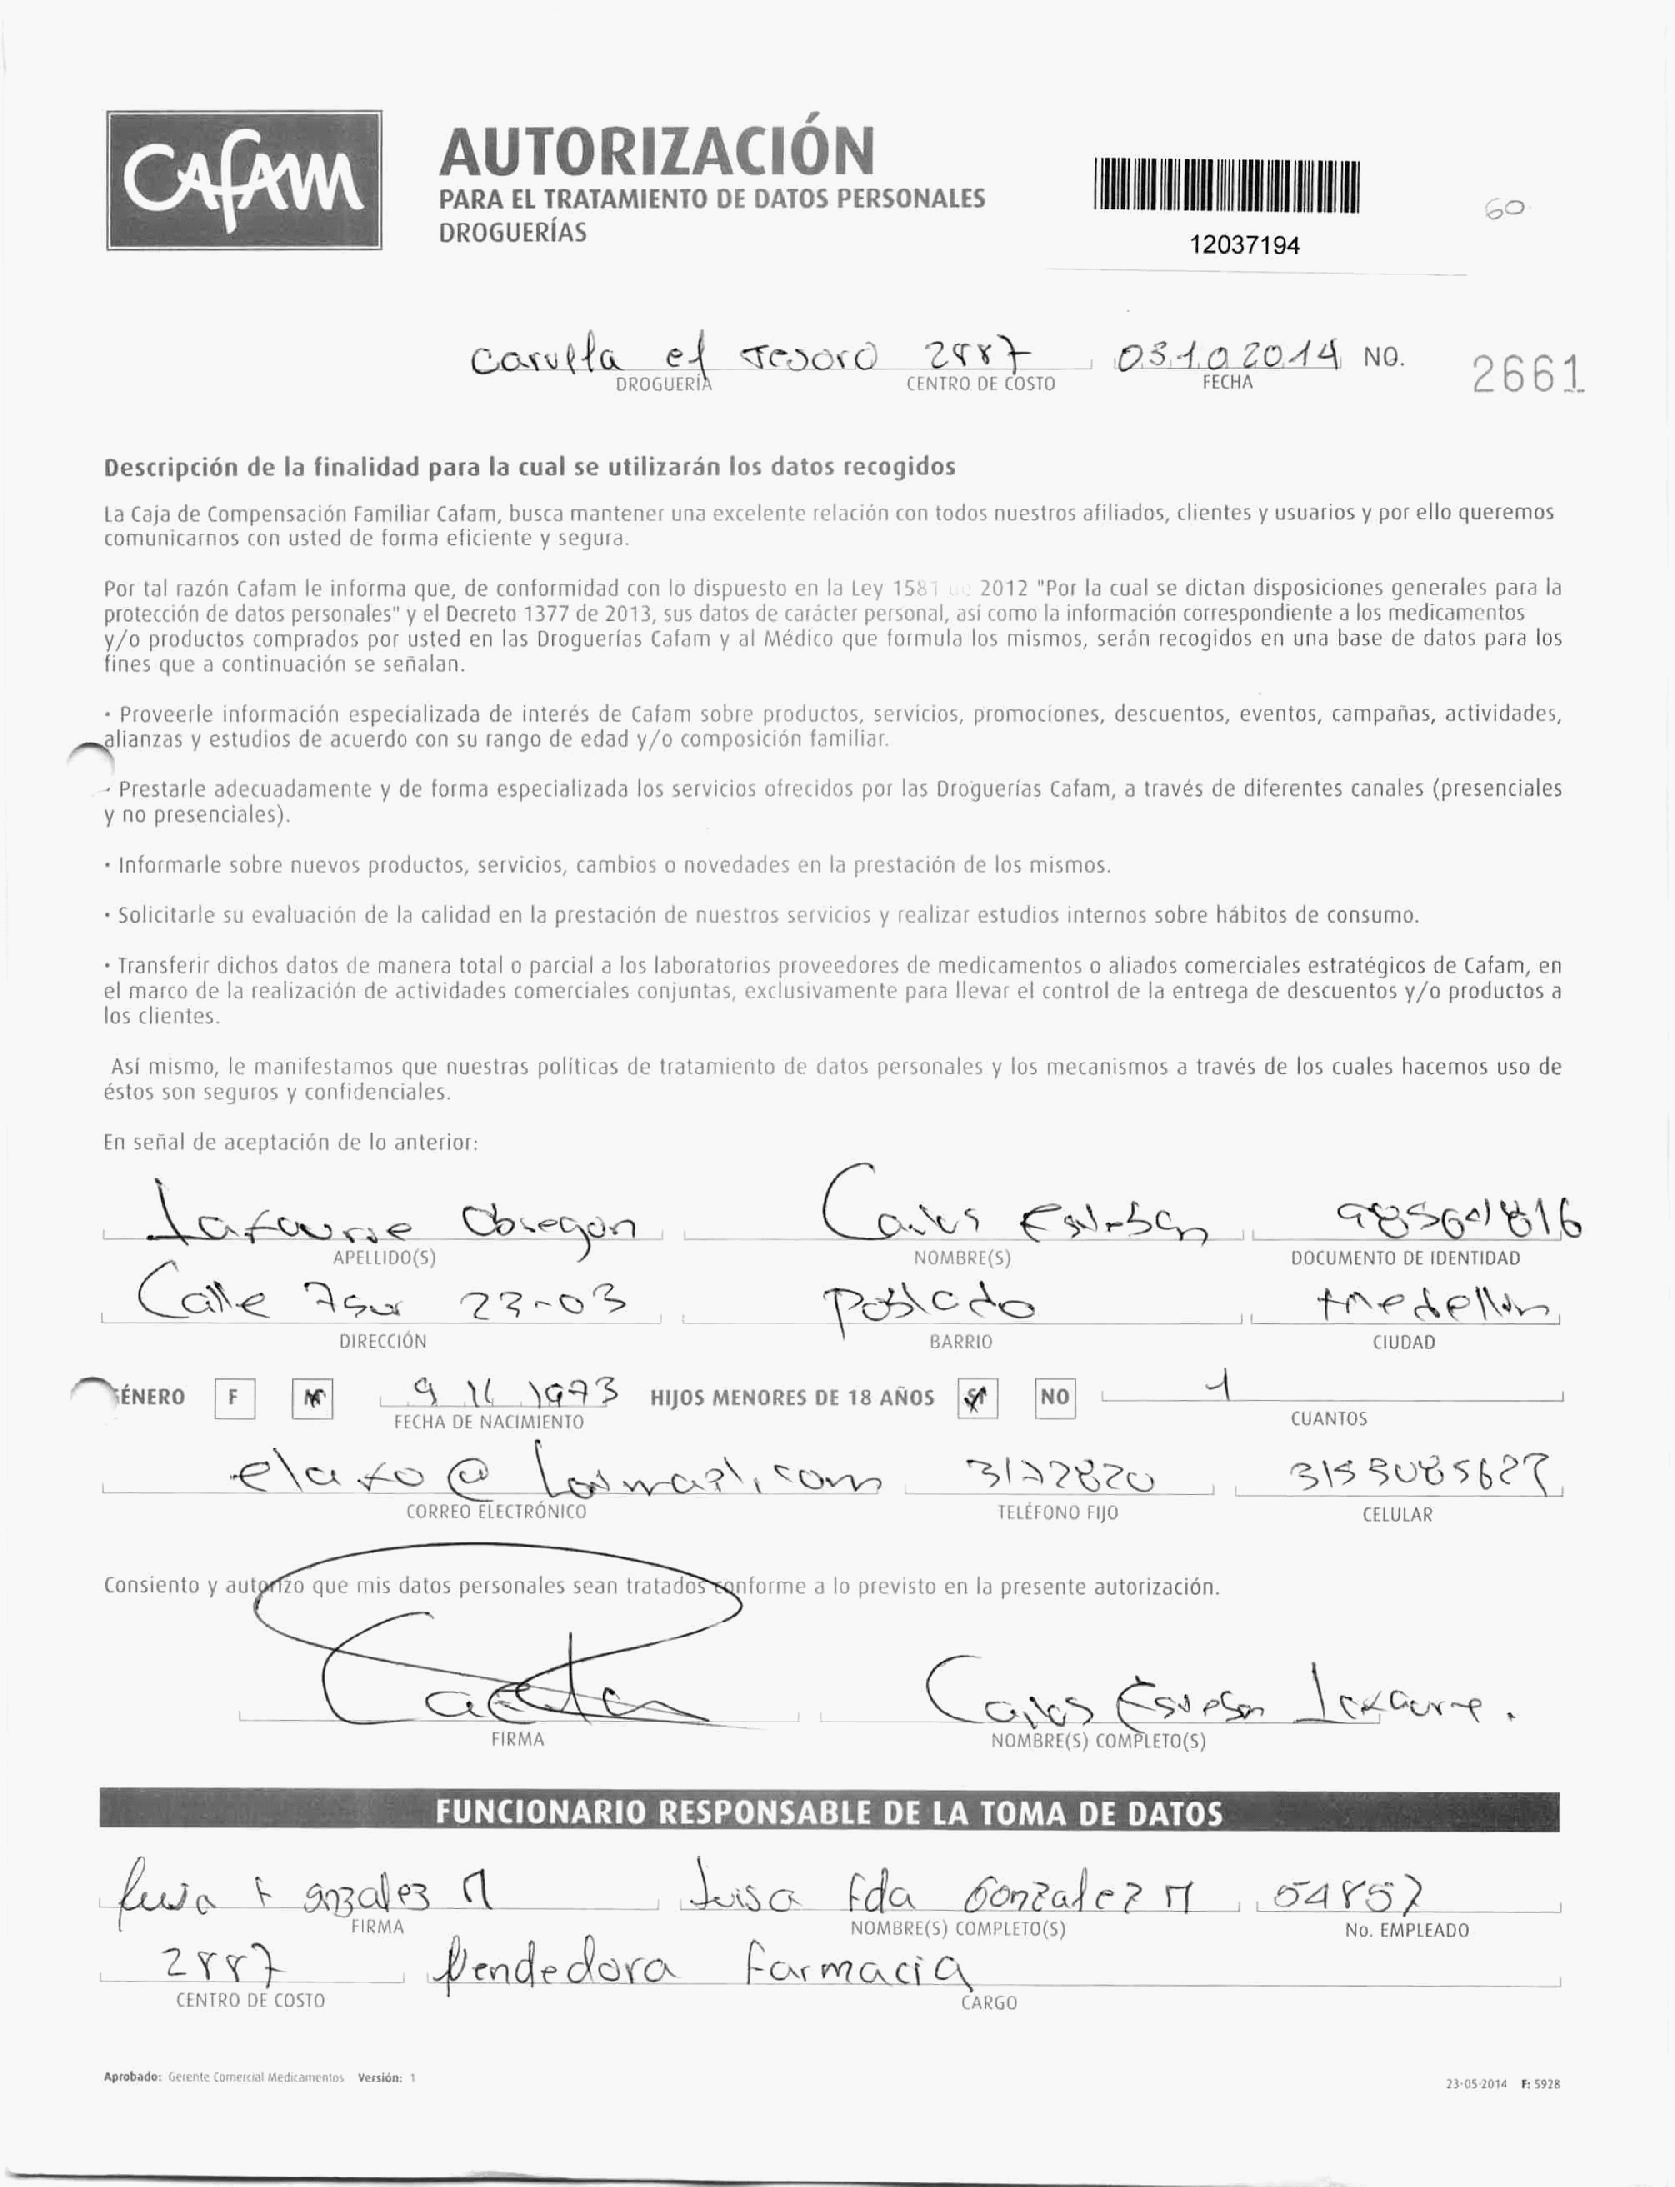 CAFAM
AUTORIZACIÓN
PARA EL TRATAMIENTO DE DATOS PERSONALES
DROGUERÍAS
12037194
60
Carulla el Tesoro 2887 03.10.2014 NO. 2661
DROGUERÍA CENTRO DE COSTO FECHA
Descripción de la finalidad para la cual se utilizarán los datos recogidos
La Caja de Compensación Familiar Cafam, busca mantener una excelente relación con todos nuestros afiliados, clientes y usuarios y por ello queremos
comunicarnos con usted de forma eficiente y segura.
Por tal razón Cafam le informa que, de conformidad con lo dispuesto en la Ley 1581 de 2012 "Por la cual se dictan disposiciones generales para la
protección de datos personales" y el Decreto 1377 de 2013, sus datos de carácter personal, así como la información correspondiente a los medicamentos
y/o productos comprados por usted en las Droguerías Cafam y al Médico que formula los mismos, serán recogidos en una base de datos para los
fines que a continuación se señalan.
· Proveerle información especializada de interés de Cafam sobre productos, servicios, promociones, descuentos, eventos, campañas, actividades,
alianzas y estudios de acuerdo con su rango de edad y/o composición familiar.
· Prestarle adecuadamente y de forma especializada los servicios ofrecidos por las Droguerías Cafam, a través de diferentes canales (presenciales
y no presenciales).
· Informarle sobre nuevos productos, servicios, cambios o novedades en la prestación de los mismos.
· Solicitarle su evaluación de la calidad en la prestación de nuestros servicios y realizar estudios internos sobre hábitos de consumo.
· Transferir dichos datos de manera total o parcial a los laboratorios proveedores de medicamentos o aliados comerciales estratégicos de Cafam, en
el marco de la realización de actividades comerciales conjuntas, exclusivamente para llevar el control de la entrega de descuentos y/o productos a
los clientes.
Así mismo, le manifestamos que nuestras políticas de tratamiento de datos personales y los mecanismos a través de los cuales hacemos uso de
éstos son seguros y confidenciales.
En señal de aceptación de lo anterior:
Lafaurie Obregon Carlos Esteban
APELLIDO(S) NOMBRE(S) DOCUMENTO DE IDENTIDAD
Calle 7 Sur 23-03 Poblado Medellin
DIRECCIÓN BARRIO CIUDAD
GÉNERO F M 9 11 1973 HIJOS MENORES DE 18 AÑOS SI NO 1
FECHA DE NACIMIENTO CUANTOS
3122820
CORREO ELECTRÓNICO TELÉFONO FIJO CELULAR
Consiento y autorizo que mis datos personales sean tratados conforme a lo previsto en la presente autorización.
Carlos Esteban Lafaurie.
FIRMA NOMBRE(S) COMPLETO(S)
FUNCIONARIO RESPONSABLE DE LA TOMA DE DATOS
Luisa F Gonzalez M Luisa Fda Gonzalez M 54857
FIRMA NOMBRE(S) COMPLETO(S) No. EMPLEADO
2887 Vendedora Farmacia
CENTRO DE COSTO CARGO
Aprobado: Gerente Comercial Medicamentos Versión: 1
23-05-2014 F: 5928